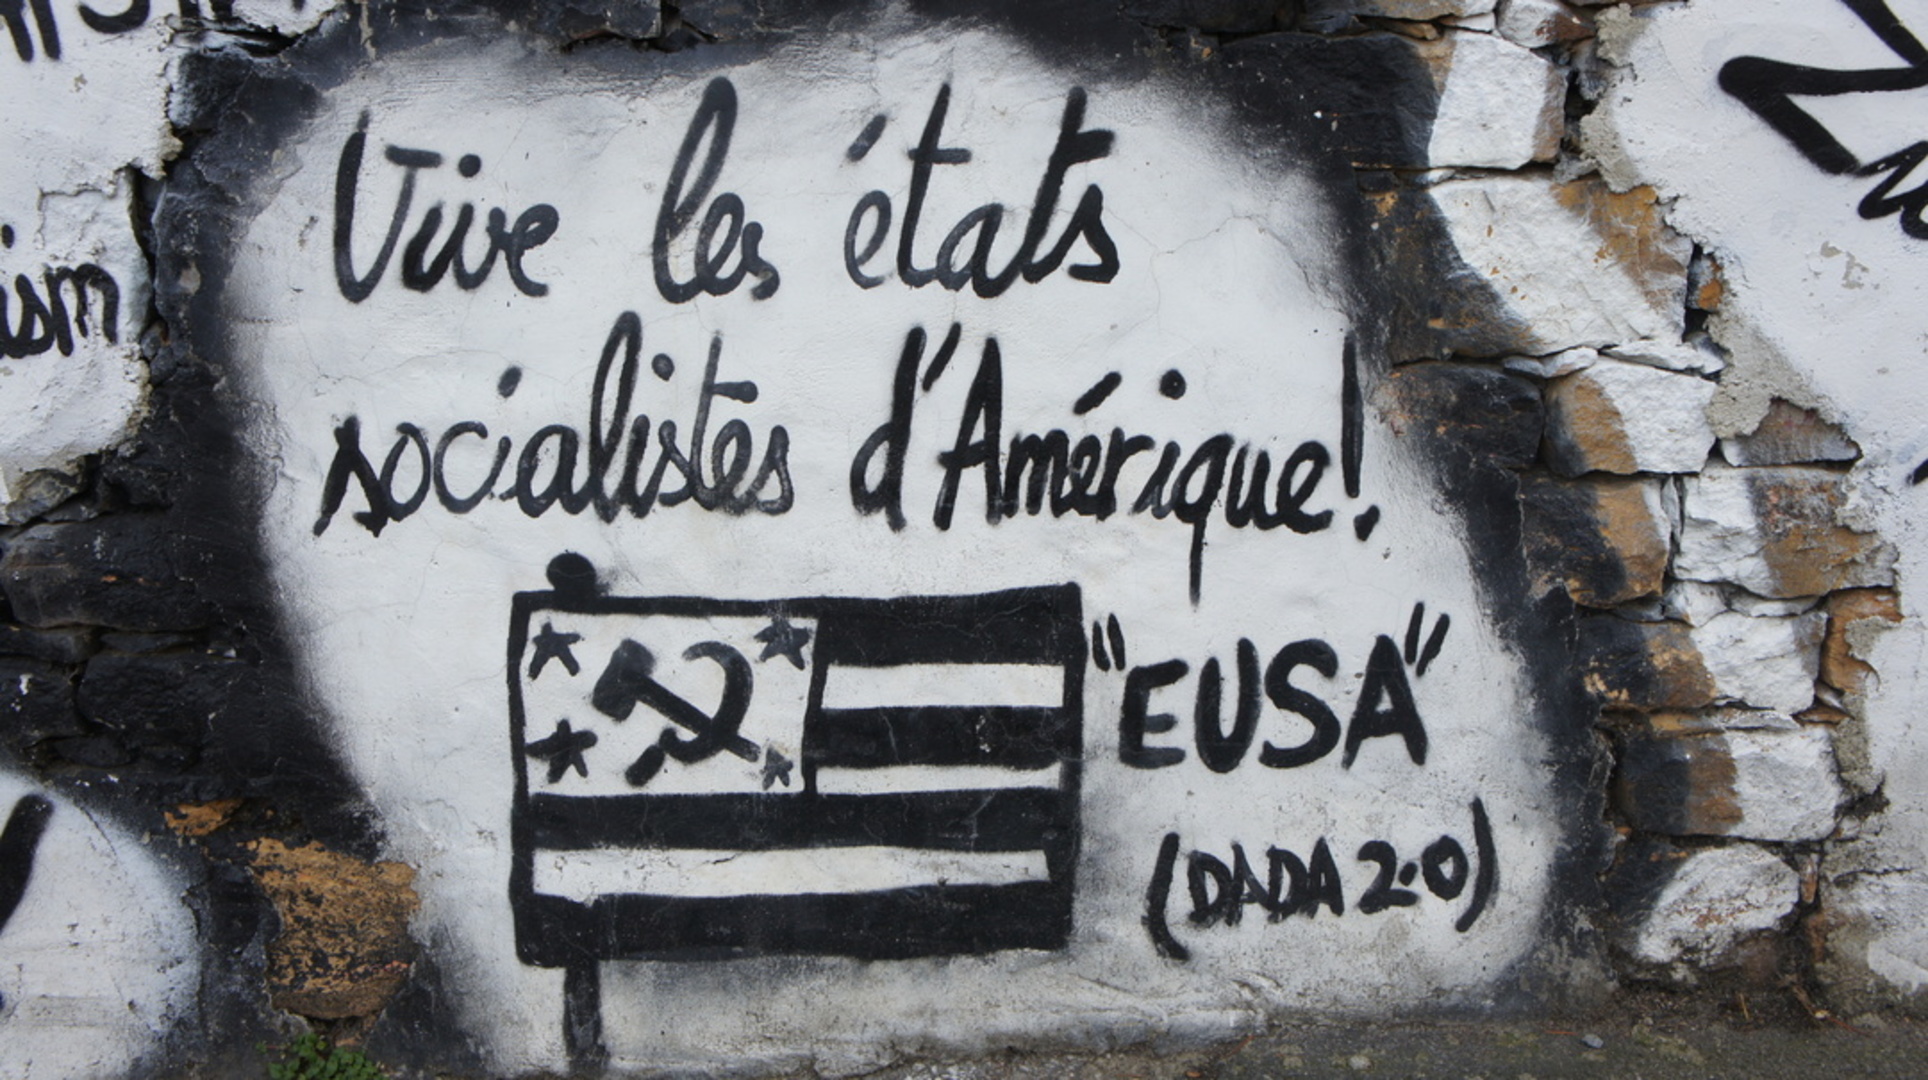 Vive les états
socialistes d'Amérique!
"EUSA"
(DADA 2.0)
ism